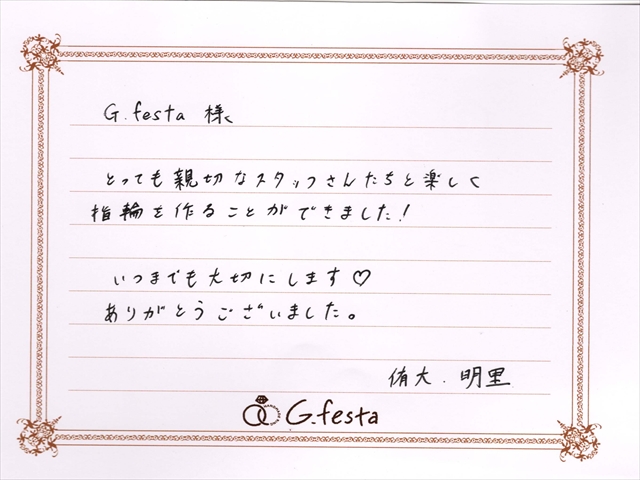 G.festa 様
とっても親切なスタッフさんたちと楽しく
指輪を作ることができました!
いつまでも大切にします♡
ありがとうございました。
侑大. 明里
G.festa